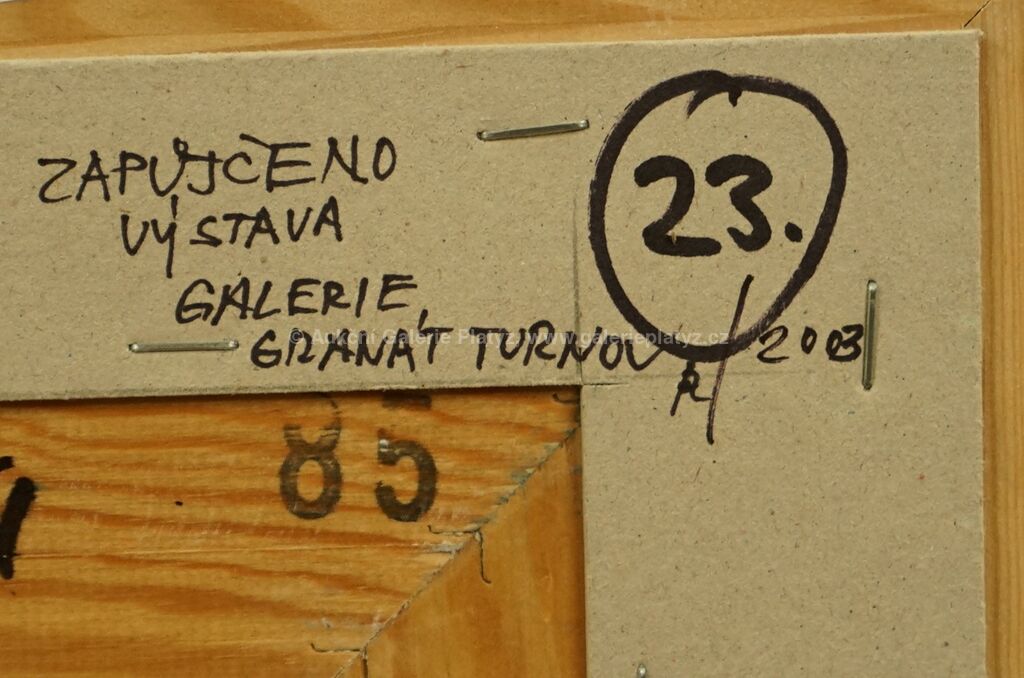 ZAPŮJČENO
23.
VÝSTAVA
GALERIE
GRANÁT TURNOV
R/ 2003
© Aukční Galerie Platýz, www.galerieplatyz.cz
85